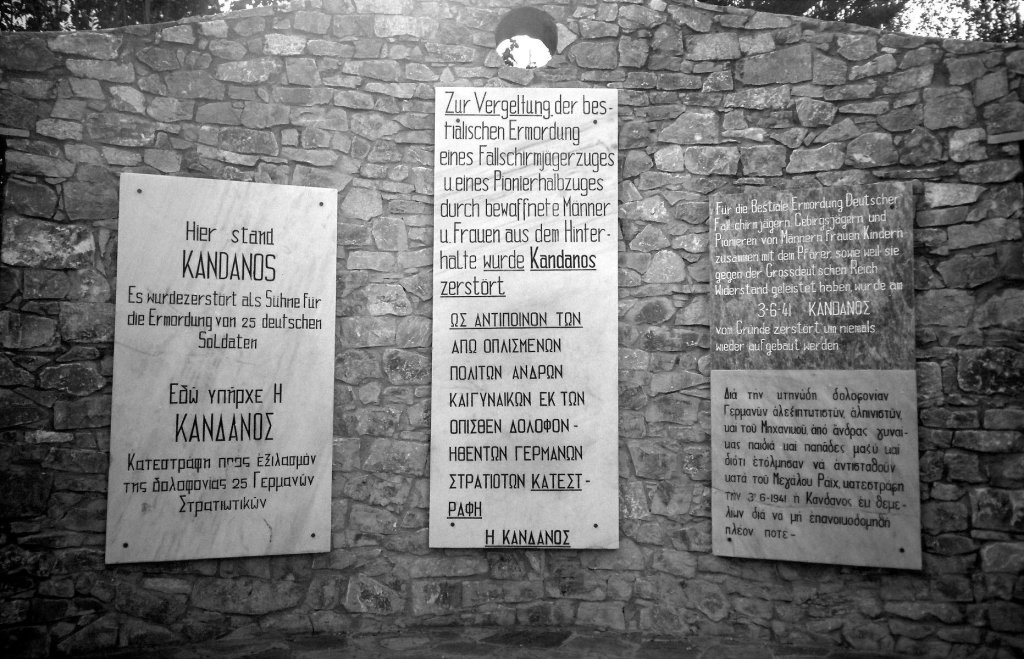 Hier stand
KANDANOS
Es wurdezerstört als Sühne für
die Ermordung von 25 deutschen
Soldaten
Εδώ υπήρχε Η
ΚΑΝΔΑΝΟΣ
Κατεστράφη προς ἐξιλασμόν
της δολοφονίας 25 Γερμανών
Στρατιωτικών
Zur Vergeltung der bes-
tialischen Ermordung
eines Fallschirmjägerzuges
u.eines Pionierhalbzuges
durch bewaffnete Männer
u. Frauen aus dem Hinter-
halte wurde Kandanos
zerstört.
ΩΣ ΑΝΤΙΠΟΙΝΟΝ ΤΩΝ
ΑΠΩ ΟΠΛΙΣΜΕΝΩΝ
ΠΟΛΙΤΩΝ ΑΝΔΡΩΝ
ΚΑΙ ΓΥΝΑΙΚΩΝ ΕΚ ΤΩΝ
ΟΠΙΣΘΕΝ ΔΟΛΟΦΟΝ-
ΗΘΕΝΤΩΝ ΓΕΡΜΑΝΩΝ
ΣΤΡΑΤΙΟΤΩΝ ΚΑΤΕΣΤ-
ΡΑΦΗ
Η ΚΑΝΔΑΝΟΣ
Für die Bestiale Ermordung Deutscher
Fallschirmjägern, Gebirgsjägern und
Pionieren von Männern Frauen Kindern
zusammen mit dem Pfärer sowie weil sie
gegen der Grossdeutschen Reich
Widerstand geleistet haben, wurde am
3-6-41 KANDANOS
vom Grunde zerstört um niemals
wieder aufgebaut werden
Διά την κτηνώδη δολοφονίαν
Γερμανών ἀλεξιπτωτιστών, ἀλπινιστών,
και του Μηχανικού ἀπό ἄνδρας γυναί-
κας παιδιά και παπάδες μαζύ και
διότι ἐτόλμησαν νά ἀντισταθούν
κατά του Μεγάλου Ραίχ κατεστράφη
την 3-6-1941 ἡ Κανδανος ἐκ θεμε-
λιων διά νά μή ἐπανοικοδομηθή
πλέον ποτε-